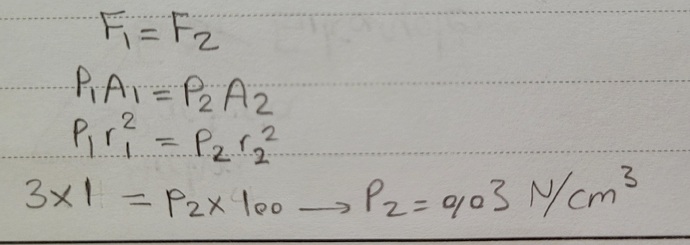 F₁ = F₂
P₁A₁ = P₂A₂
P₁r₁² = P₂r₂²
3×1 = P₂×100 → P₂ = 0,03 N/cm³